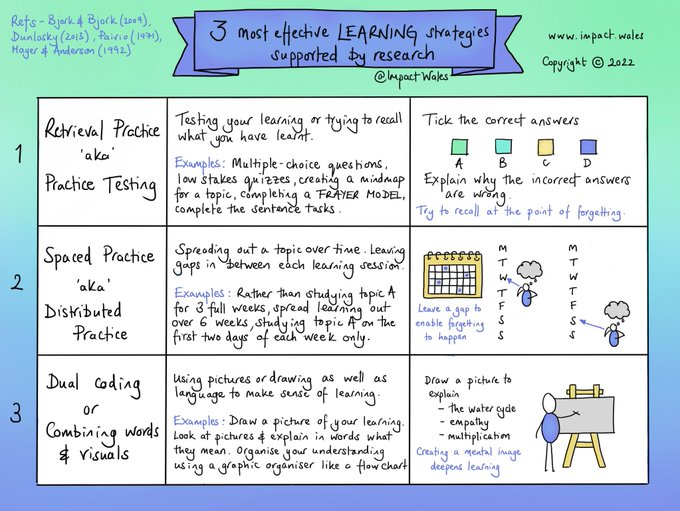 Refs - Bjork & Bjork (2009),
Dunlosky (2013), Paivio (1971),
Mayer & Anderson (1992)
3 most effective LEARNING strategies
supported by research
@ImpactWales
www.impact.wales
Copyright © 2022
1
Retrieval Practice
'aka'
Practice Testing
Testing your learning or trying to recall
what you have learnt.
Examples: Multiple-choice questions,
low stakes quizzes, creating a mindmap
for a topic, completing a FRAYER MODEL,
complete the sentence tasks.
Tick the correct answers
A B C D
Explain why the incorrect answers
are wrong.
Try to recall at the point of forgetting.
2
Spaced Practice
'aka'
Distributed
Practice
Spreading out a topic over time. Leaving
gaps in between each learning session.
Examples: Rather than studying topic A
for 3 full weeks, spread learning out
over 6 weeks, studying topic A on the
first two days of each week only.
Leave a gap to
enable forgetting
to happen
M
T
W
T
F
S
S
M
T
W
T
F
S
S
3
Dual coding
or
Combining words
& visuals
Using pictures or drawing as well as
language to make sense of learning.
Examples: Draw a picture of your learning.
Look at pictures & explain in words what
they mean. Organise your understanding
using a graphic organiser like a flowchart
Draw a picture to
explain
- the water cycle
- empathy
- multiplication
Creating a mental image
deepens learning